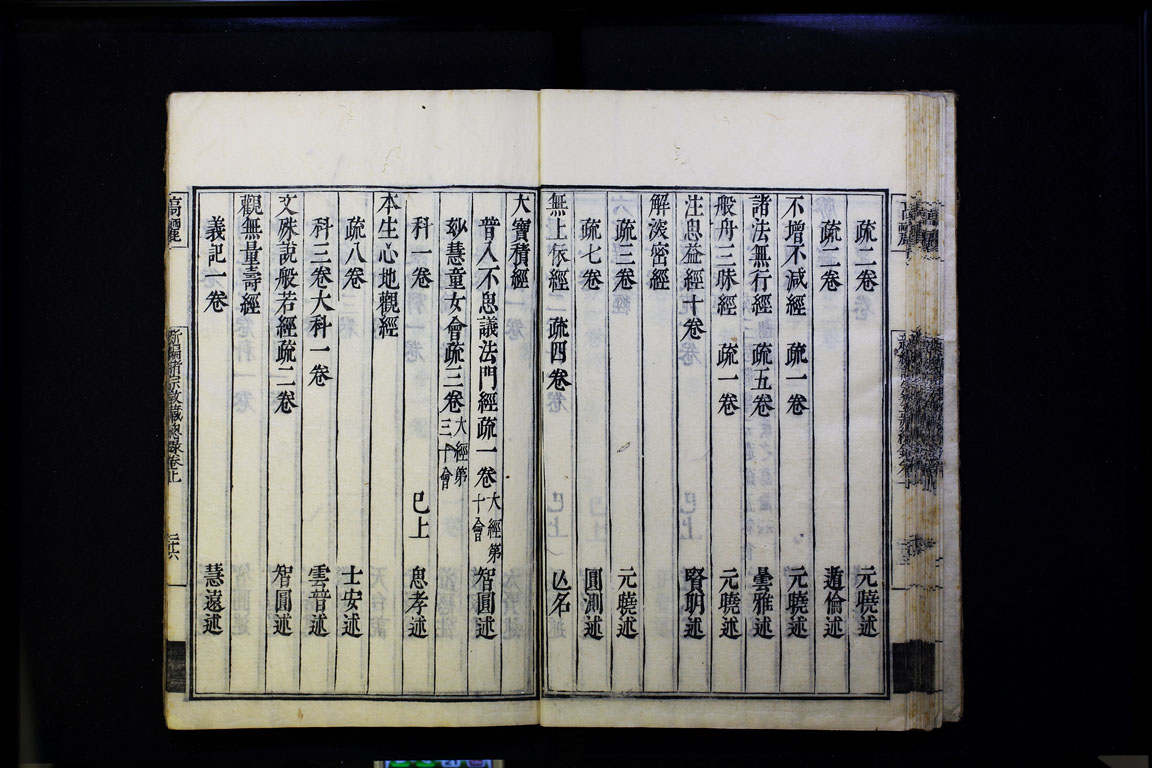 疏二卷 元曉述
疏二卷 遁倫述
不增不減經 疏一卷 元曉述
諸法無行經 疏五卷 曇雅述
般舟三昧經 疏一卷 元曉述
注思益經十卷 賢明述
解深密經
疏三卷 元曉述
疏七卷 圓測述
無上依經 疏四卷 亾名
大寶積經
普入不思議法門經疏一卷 大經第十會 智圓述
玅慧童女會疏三卷 大經第三十會
科一卷 巳上 思孝述
本生心地觀經
疏八卷 士安述
科三卷大科一卷 雲普述
文殊說般若經疏二卷 智圓述
觀無量壽經
義記一卷 慧遠述
高麗
新編諸宗教藏總錄卷上
三十六